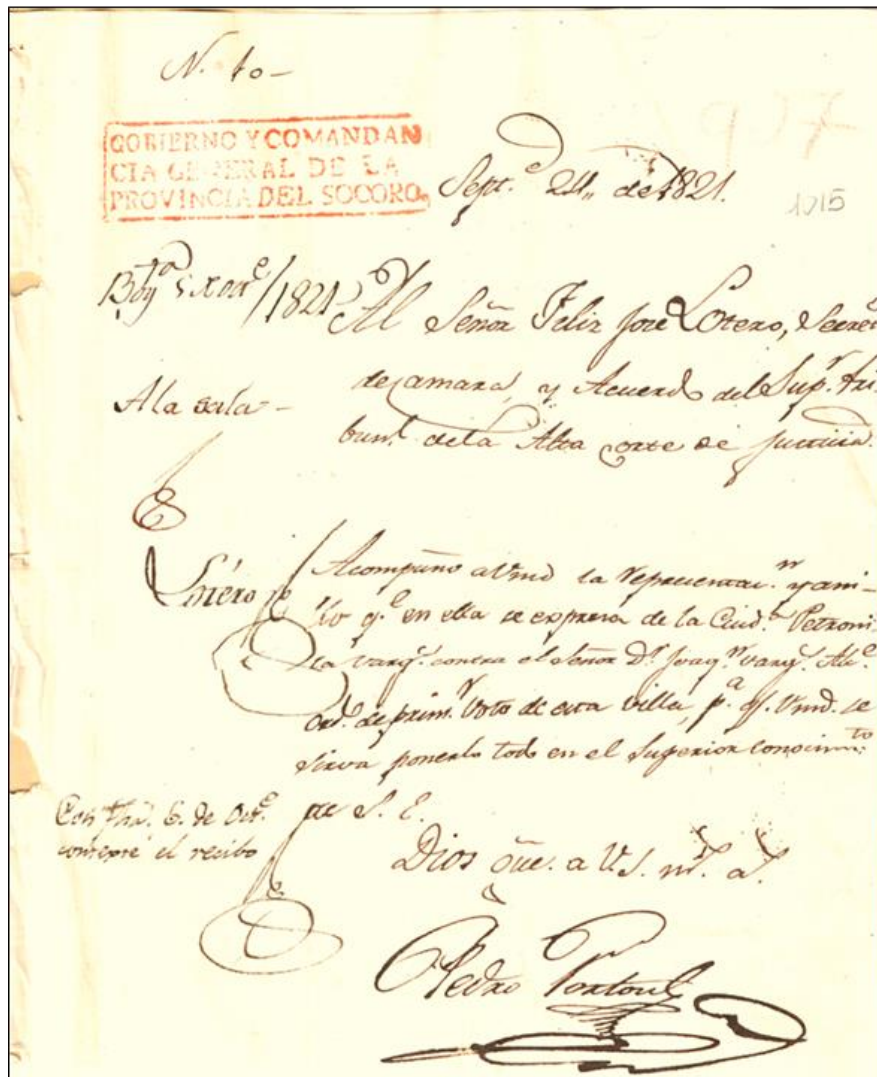 N. 10-
GOBIERNO Y COMANDAN
CIA GENERAL DE LA
PROVINCIA DEL SOCORO,
Sept.e 24,, de 1821.
1015
Bog.ta 5 X octe/1821
Al Señor Feliz José Lotero, Secre.
de camara, y Acuerdo del Sup.r tri.
bunl. de la Alta Corte de Justicia.
A la sala-
Lotéro
Acompaño a Vmd la representac.n y ani-
llo q.e en ella se expresa de la Ciud.a Petroni
la Varg.s contra el Señor D.r Joaq.n Varg.s Alc.e
Ord.o de prim.r Voto de esta villa, p.a q.e Vmd. se
sirva ponerlo todo en el Superior conocim.to
de S. E.
Con fha. 6. de Oct.e
contexté el recibo
Dios gue. a U.S. m.s a.s
Pedro Fortoul